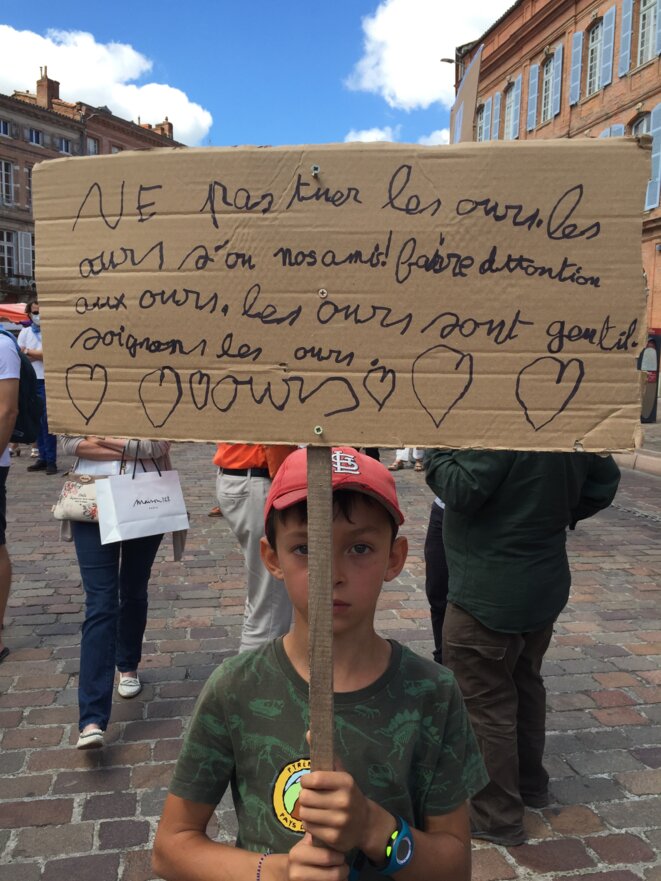 NE pas tuer les ours. les
ours s'on nos ami! faire dattontion
aux ours. les ours sont gentil.
soignons les ours.
ours
maison 123
PARIS
PAYS D